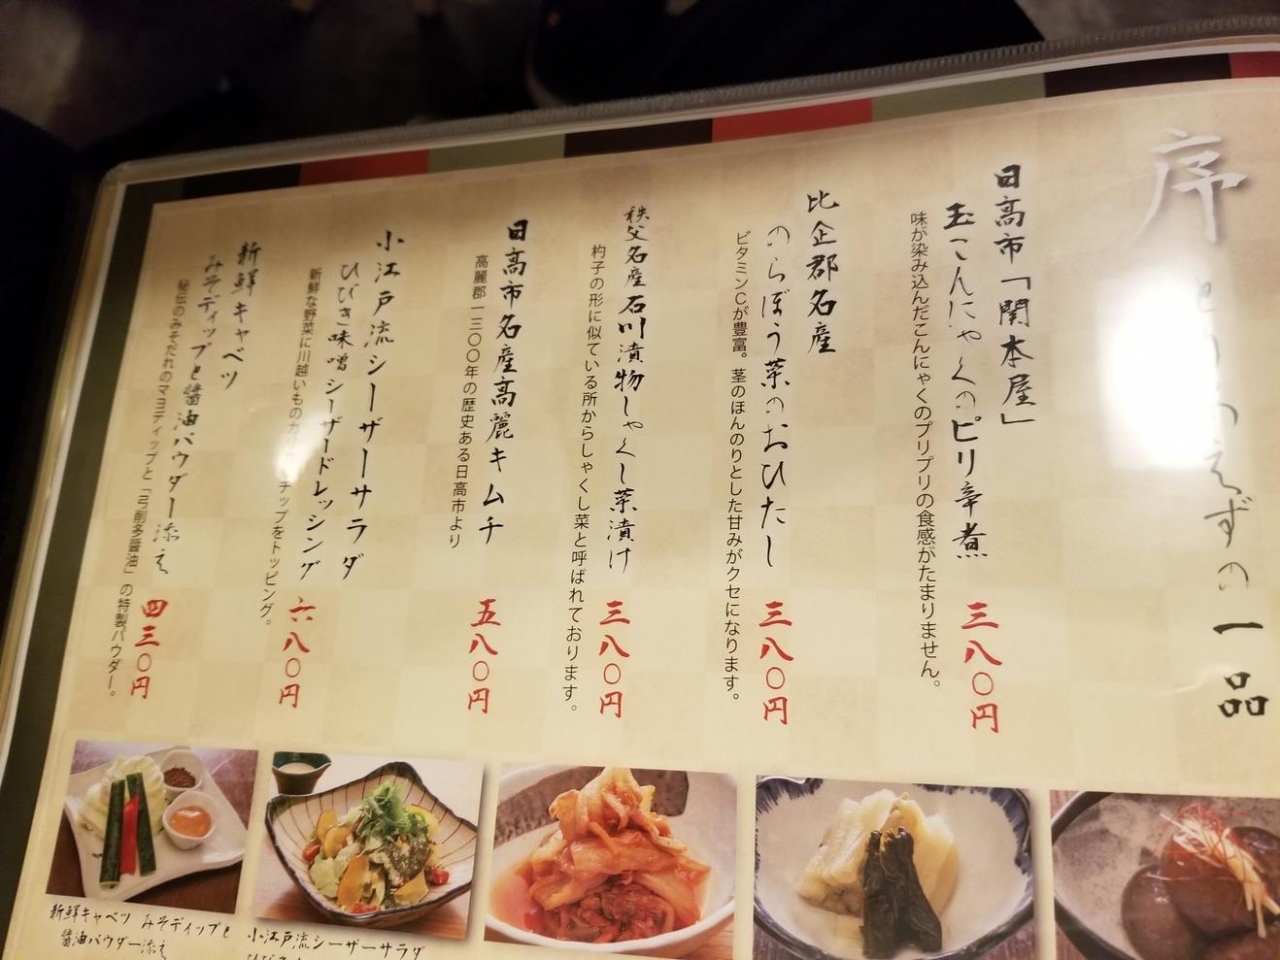 序
とりあえずの一品
日高市「関本屋」
玉こんにゃくのピリ辛煮
三八〇円
味が染み込んだこんにゃくのプリプリの食感がたまりません。
比企郡名産
のらぼう菜のおひたし
三八〇円
ビタミンCが豊富。茎のほんのりとした甘みがクセになります。
秩父名産石川漬物しゃくし菜漬け
三八〇円
杓子の形に似ている所からしゃくし菜と呼ばれております。
日高市名産高麗キムチ
五八〇円
高麗郡一三〇〇年の歴史ある日高市より
小江戸流シーザーサラダ
ひびき味噌シーザードレッシング
六八〇円
新鮮な野菜に川越いものカリカリチップをトッピング。
新鮮キャベツ
みそディップと醤油パウダー添え
四三〇円
秘伝のみそだれのマヨディップと「弓削多醤油」の特製パウダー。
新鮮キャベツ みそディップと
醤油パウダー添え
小江戸流シーザーサラダ